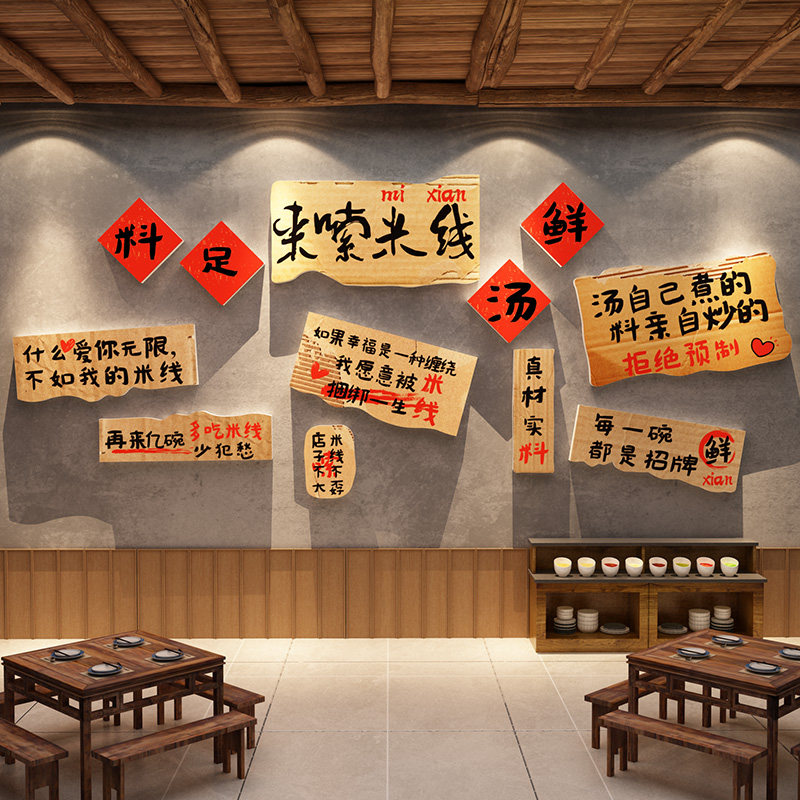 mi xian
来嗦米线
料足
鲜汤
汤自己煮的
料亲自炒的
拒绝预制
什么爱你无限,
不如我的米线
如果幸福是一种缠绕
我愿意被米
捆绑一生线
真材实料
再来亿碗 多吃米线
少犯愁
店子不大
米线不孬
每一碗
都是招牌
鲜
xian